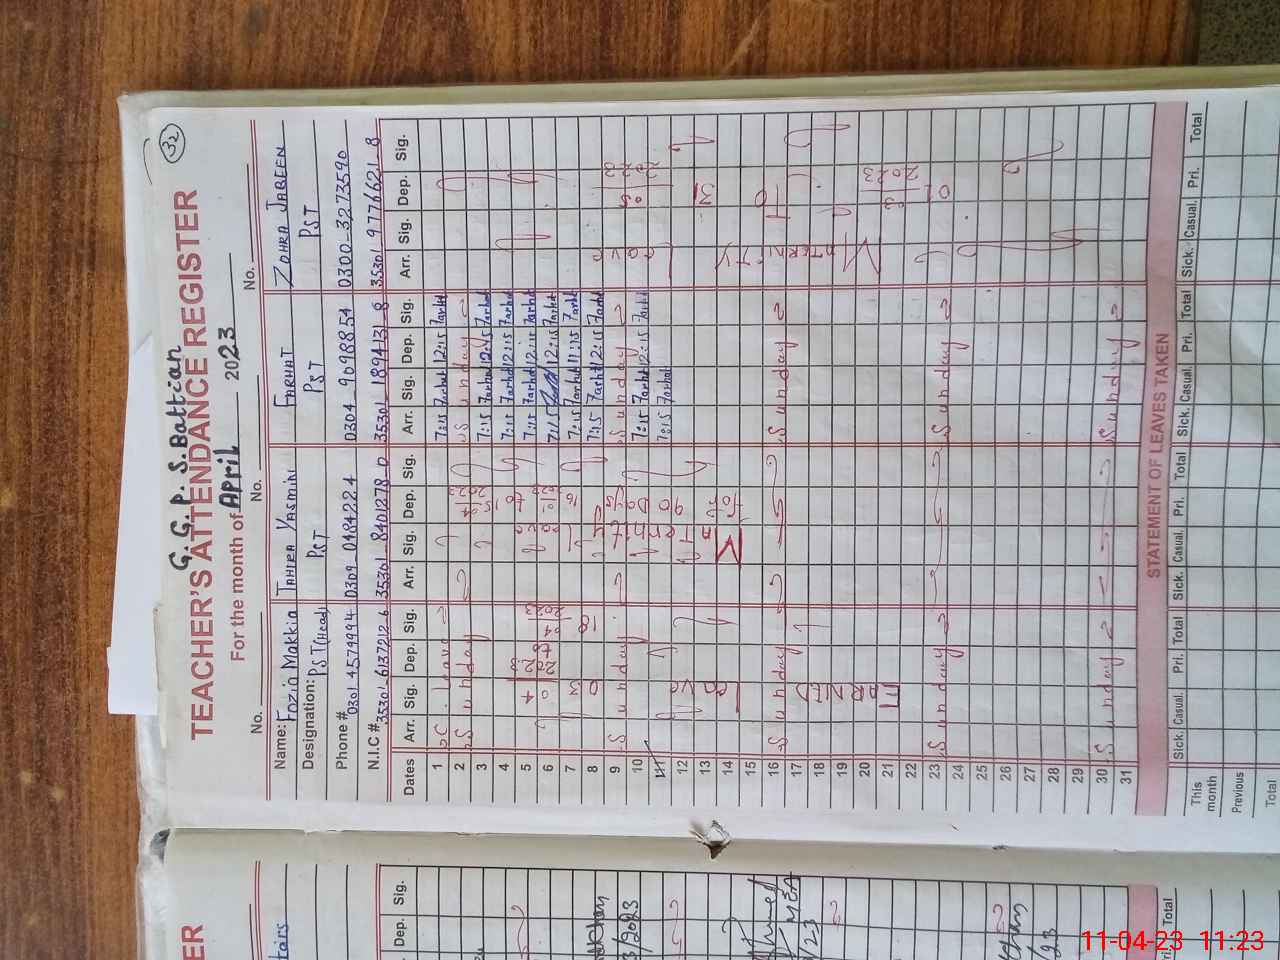 32
G. G. P. S. Battian
TEACHER'S ATTENDANCE REGISTER
For the month of April 2023
No. No. No.
Name: Fozia Makkia TAHIRA YASMIN FARHAT ZOHRA JABEEN
Designation: PST(Head) PST PST PST
Phone # 0301 4579994 0309 0484224 0304 9098854 0300-3273590
N.I.C # 35301-6137212-6 35301 8401278 0 35301 1894131 8 35301 9776621 8
Dates Arr. Sig. Dep. Sig. Arr. Sig. Dep. Sig. Arr. Sig. Dep. Sig. Arr. Sig. Dep. Sig.
1 Leave 7:15 Farhat 12:15 Farhat
2 Sunday Sunday
3 7:15 Farhat 12:15 Farhat
4 7:15 Farhat 12:15 Farhat
5 7:15 Farhat 12:15 Farhat
6 7:15 12:15 Farhat
7 7:15 Farhat 11:15 Farhat
8 7:15 Farhat 12:15 Farhat
9 Sunday Sunday
10 7:15 Farhat 12:15 Farhat
11 7:15 Farhat
12
13
14
15
16 Sunday Sunday
17
18
19
20
21
22
23 Sunday Sunday
24
25
26
27
28
29
30 Sunday Sunday
31
EARNED Leave
03 04 2023 to 18 04 2023
Maternity Leave
for 90 Days
to
MATERNITY Leave
TO
31
2023
01
2023
STATEMENT OF LEAVES TAKEN
Sick. Casual. Pri. Total Sick. Casual. Pri. Total Sick. Casual. Pri. Total Sick. Casual. Pri. Total
This month
Previous
Total
ER
Dep. Sig.
Total
11-04-23 11:23